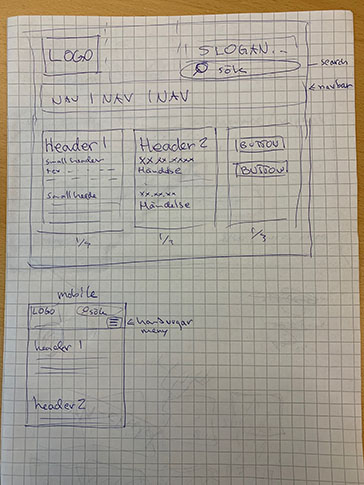 LOGO
SLOGAN...
sök
search
NAV | NAV | NAV
navbar
Header 1
Small header
Small heade
Header 2
xx.xx.xxxx
Händelse
xx.xx.xx
Händelse
BUTTON
BUTTON
1/3
1/3
1/3
mobile
LOGO
sök
hamburgar
meny
header 1
header 2